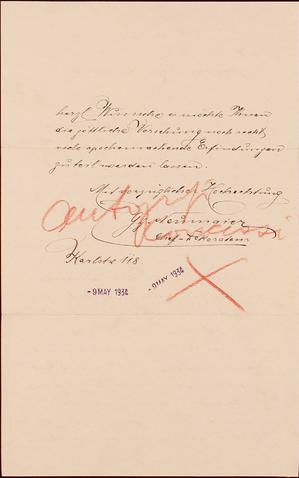 herzl. Wunsche es möchte Ihnen
die göttliche Vorsehung noch recht
viele epochemachende Erfindungen
zuteil werden lassen.
Mit vorzüglicher Hochachtung
Neumaier
autografi
concessi
Karlstr. 118.
-9 MAY 1934
-9 MAY 1934